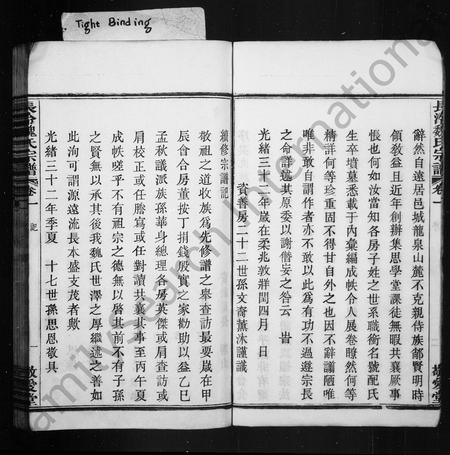 Tight Binding
長沩魏氏宗譜 卷一
辭然自遠居邑城龍泉山麓不克親侍族郁賢明時
領教益且近年創辦集思學堂課徒無暇共襄厥事
悵也何如汝當知各房子姓之世系職銜名號配氏
生卒墳墓悉載于內彙編成帙令人展卷瞭然何等
精詳何等珍重固不得甘自外之也因不辭譾陋唯
唯非敢自謂作者亦不敢以此為有功不過遵宗長
之命詳述其原委以謝僭妄之咎云 旹
光緒三十二年歲在柔兆敦牂閏四月 日
資善房二十二世孫文斋薰沐謹識
敬愛堂
續修宗譜記
敬祖之道收族為先修譜之舉查訪最要歲在甲
辰會合房董按丁捐錢殷實之家勸助以益乙巳
孟秋議派族孫華身總理各房英傑或肩查訪或
肩校正或任謄寫或任對讀共襄其事至丙午夏
成帙嗟乎不有祖宗之德無以啓其前不有子孫
之賢無以承其後我魏氏世澤之厚繼述之善如
此洵可謂源遠流長本盛支茂者歟
光緒三十二年季夏 十七世孫思恩敬具
長沩魏氏宗譜 卷一 記
敬愛堂